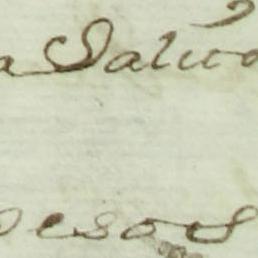 a Salud
pesos